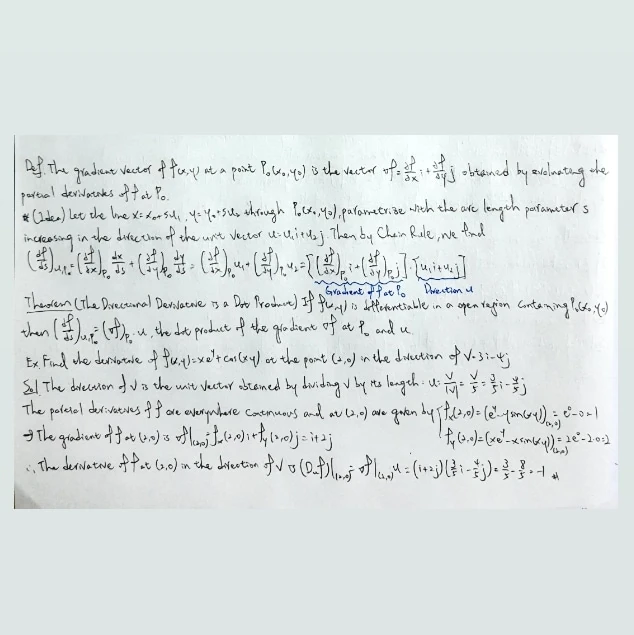 Def. The gradient vector of f(x,y) at a point P₀(x₀,y₀) is the vector ∇f = ∂f/∂x i + ∂f/∂y j obtained by evaluating the
partial derivatives of f at P₀.
* (Idea) Let the line x = x₀+su₁, y = y₀+su₂ through P₀(x₀,y₀), parametrize with the arc length parameter s
increasing in the direction of the unit vector u = u₁i+u₂j Then by Chain Rule, we find
(df/ds)u,P₀ = (∂f/∂x)P₀ dx/ds + (∂f/∂y)P₀ dy/ds = (∂f/∂x)P₀ u₁ + (∂f/∂y)P₀ u₂ = [(∂f/∂x)P₀ i + (∂f/∂y)P₀ j]·[u₁i+u₂j]
Gradient of f at P₀ Direction u
Theorem (The Directional Derivative is a Dot Product) If f(x,y) is differentiable in a open region containing P₀(x₀,y₀)
then (df/ds)u,P₀ = (∇f)P₀·u, the dot product of the gradient ∇f at P₀ and u
Ex. Find the derivative of f(x,y) = xe^y + cos(xy) at the point (2,0) in the direction of v = 3i-4j
Sol The direction of v is the unit vector obtained by dividing v by its length: u = v/|v| = v/5 = 3/5 i - 4/5 j
The partial derivatives of f are everywhere continuous and at (2,0) are given by { fx(2,0) = (e^y - y sin(xy))(2,0) = e⁰-0 = 1
→ The gradient of f at (2,0) is ∇f|(2,0) = fx(2,0)i + fy(2,0)j = i+2j fy(2,0) = (xe^y - x sin(xy))(2,0) = 2e⁰-2·0 = 2
∴ The derivative of f at (2,0) in the direction of v is (Duf)|(2,0) = ∇f|(2,0)·u = (i+2j)(3/5 i - 4/5 j) = 3/5 - 8/5 = -1